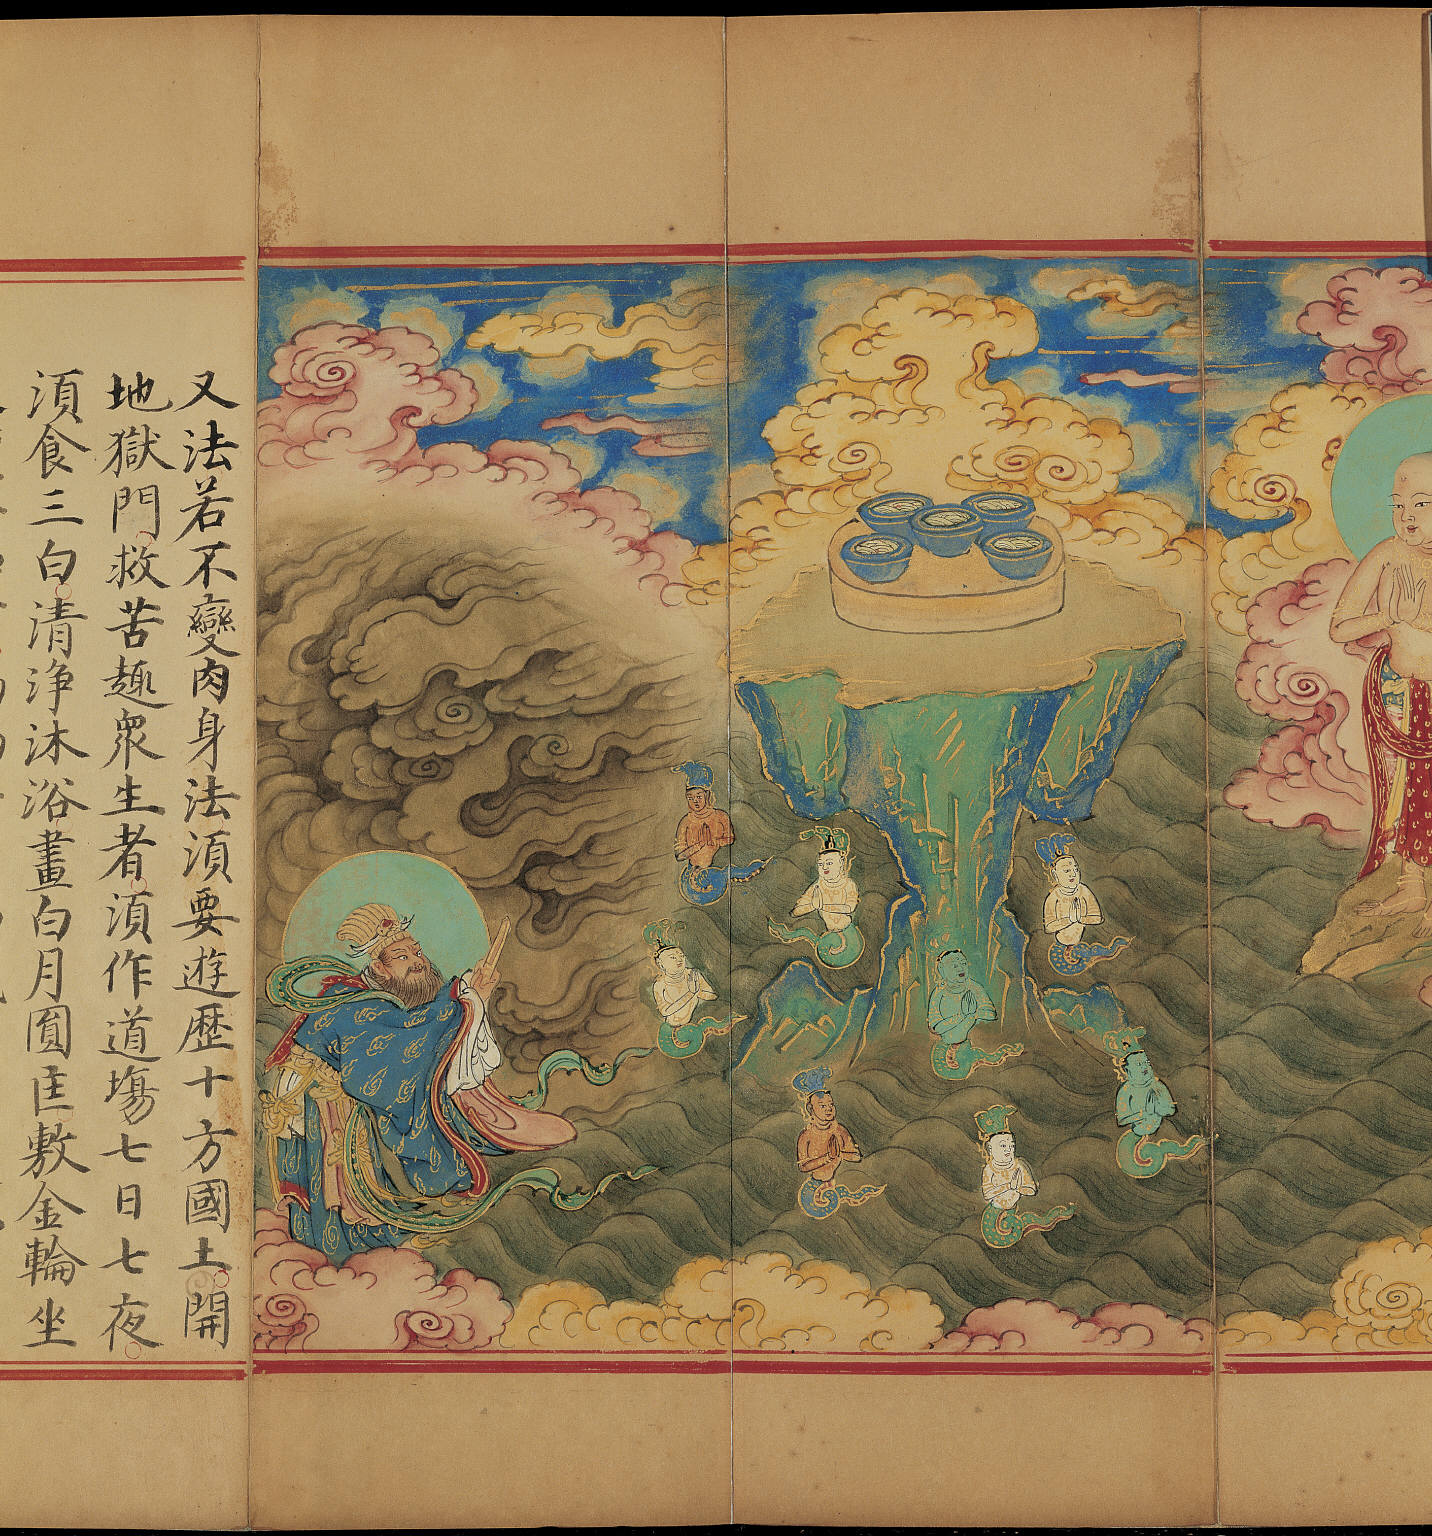 又法若不變肉身法須要遊歷十方國土開
地獄門救苦趣眾生者須作道塲七日七夜
須食三白清淨沐浴畫白月圓匡敷金輪坐